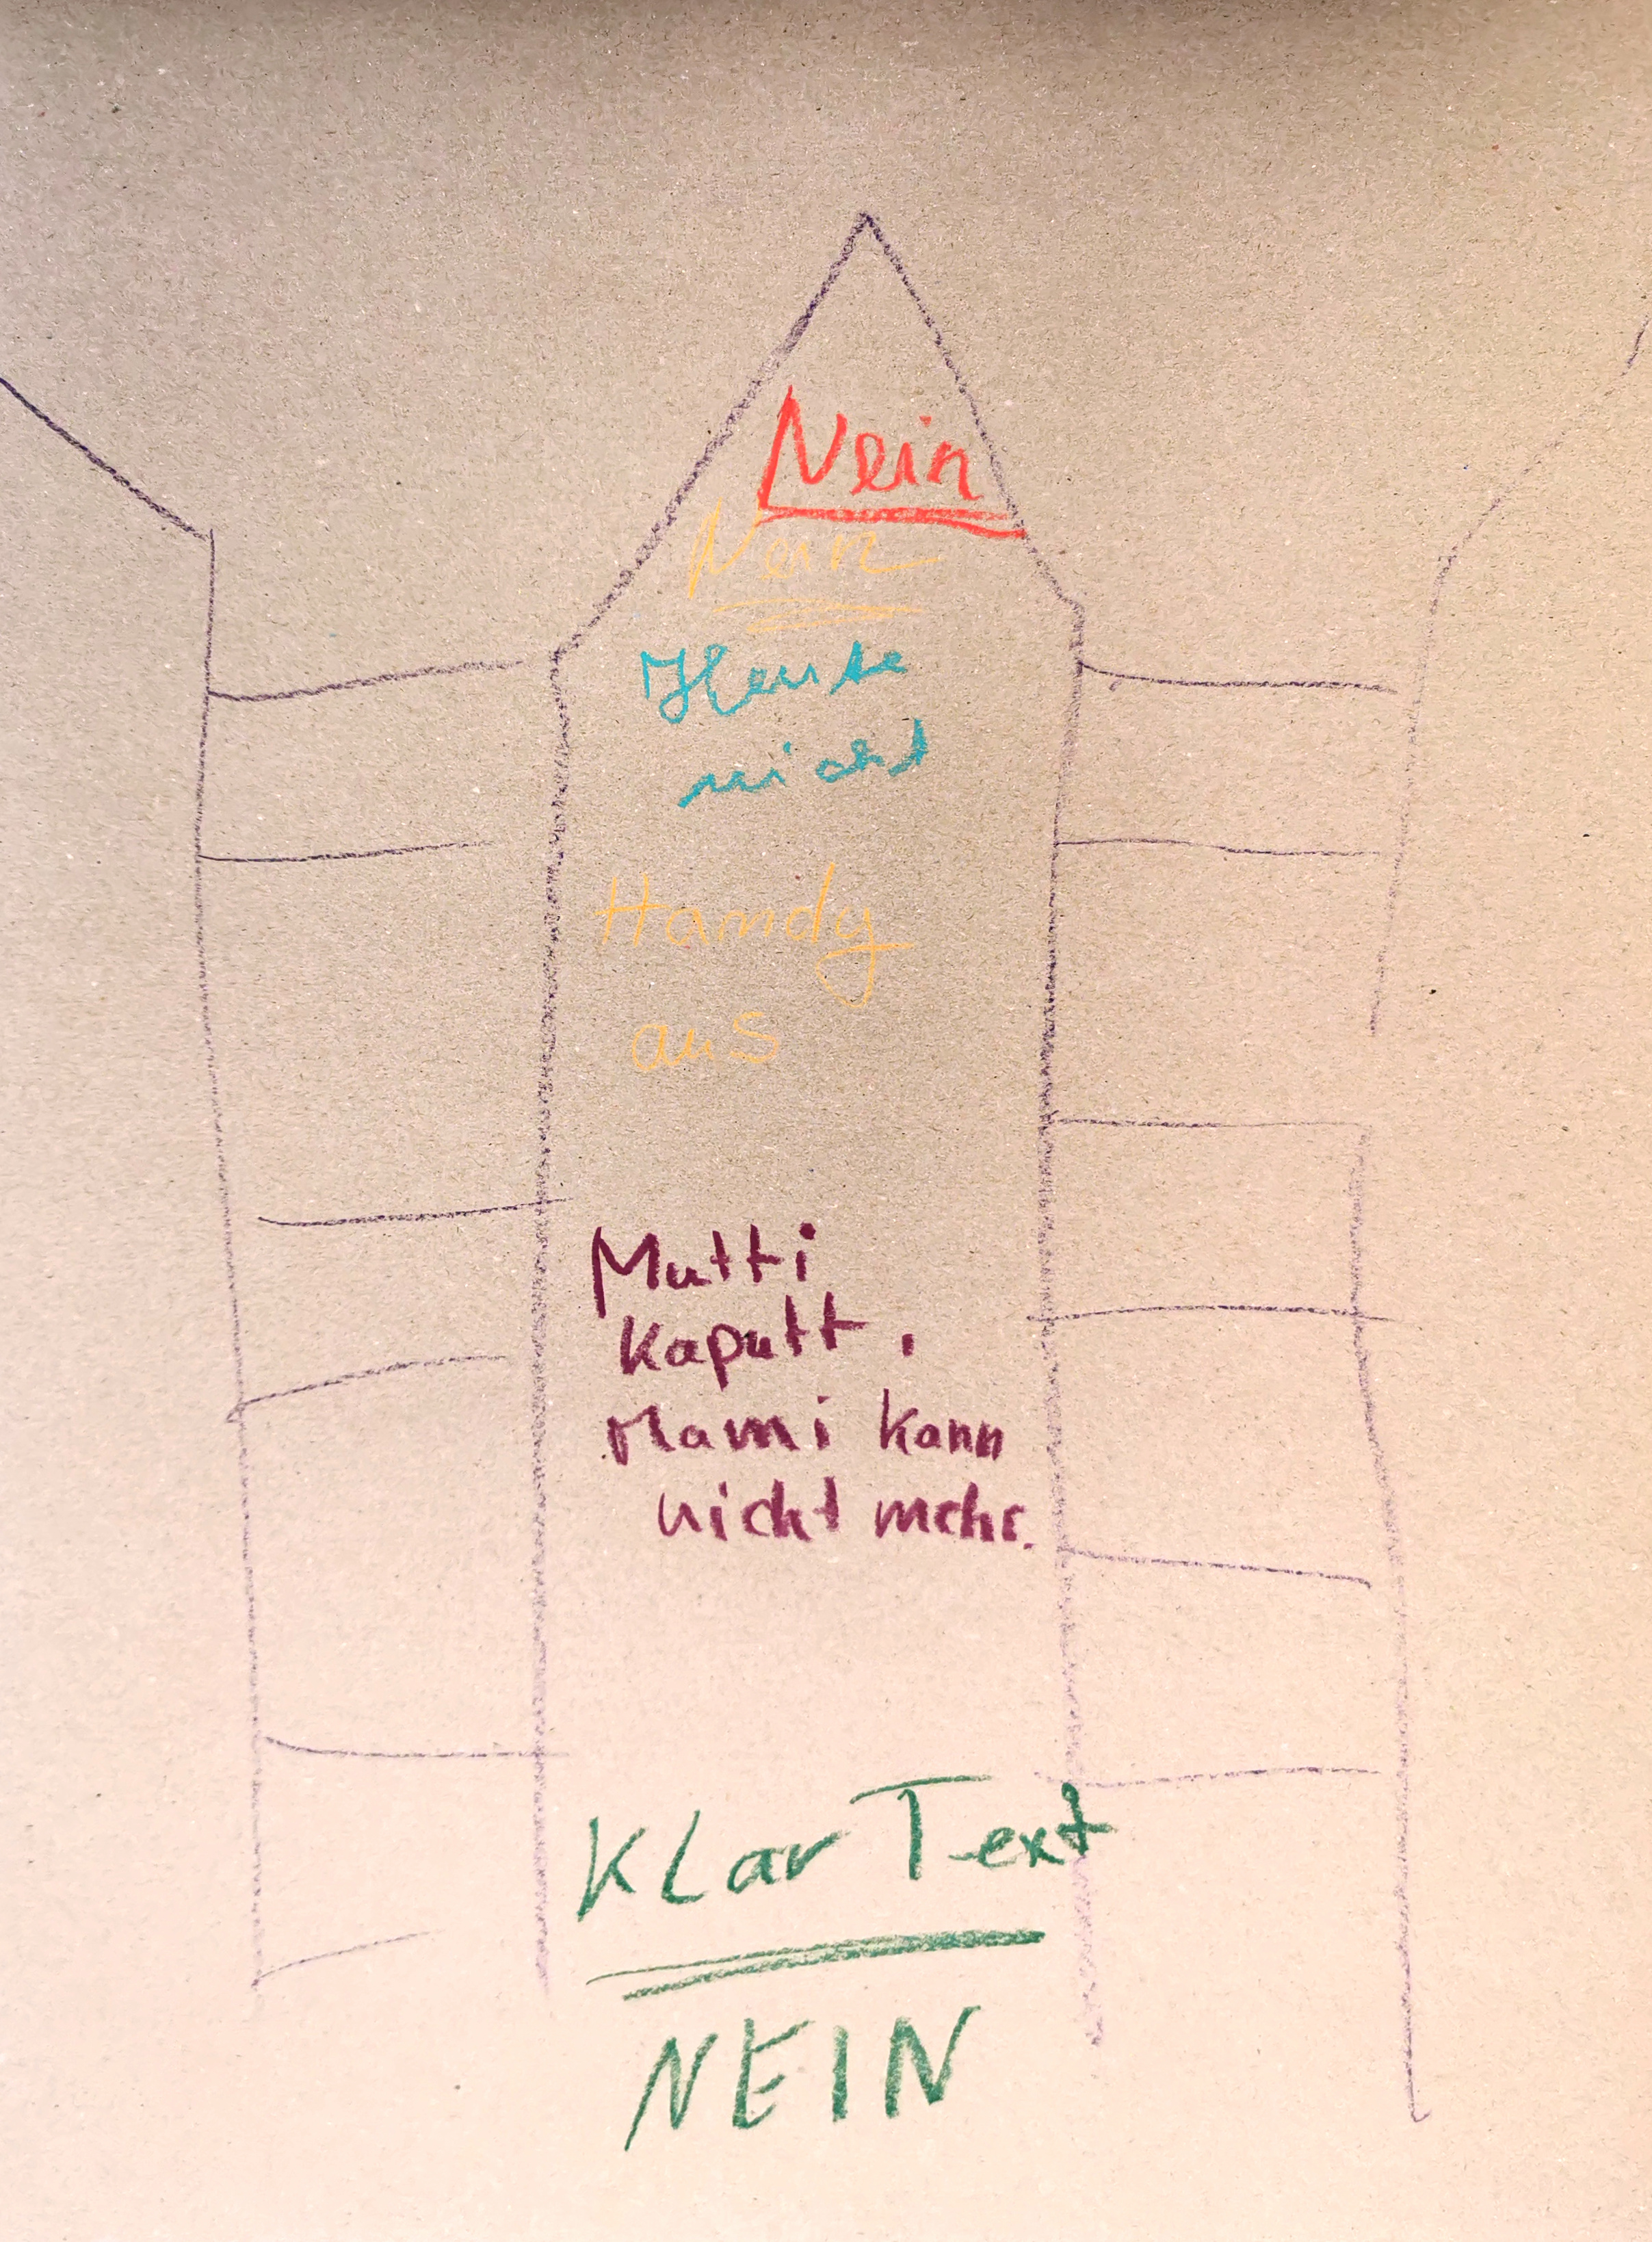 Nein
Nein
Heute
nicht
Handy
aus
Mutti
Kaputt,
Mami kann
nicht mehr.
KLar Text
NEIN